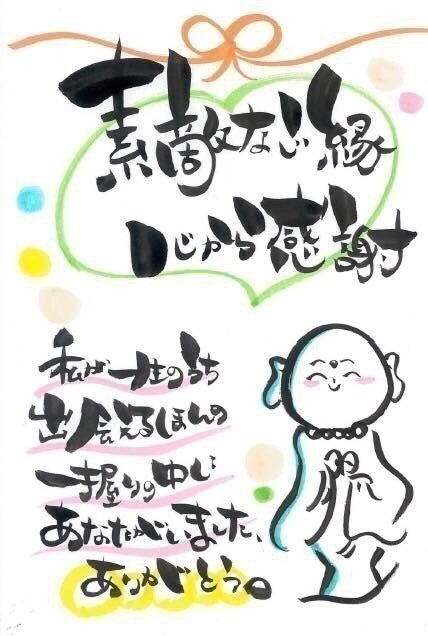 素敵なご縁
心から感謝
私が一生のうち
出会えるほんの
一握りの中に
あなたがいました、
ありがとう。